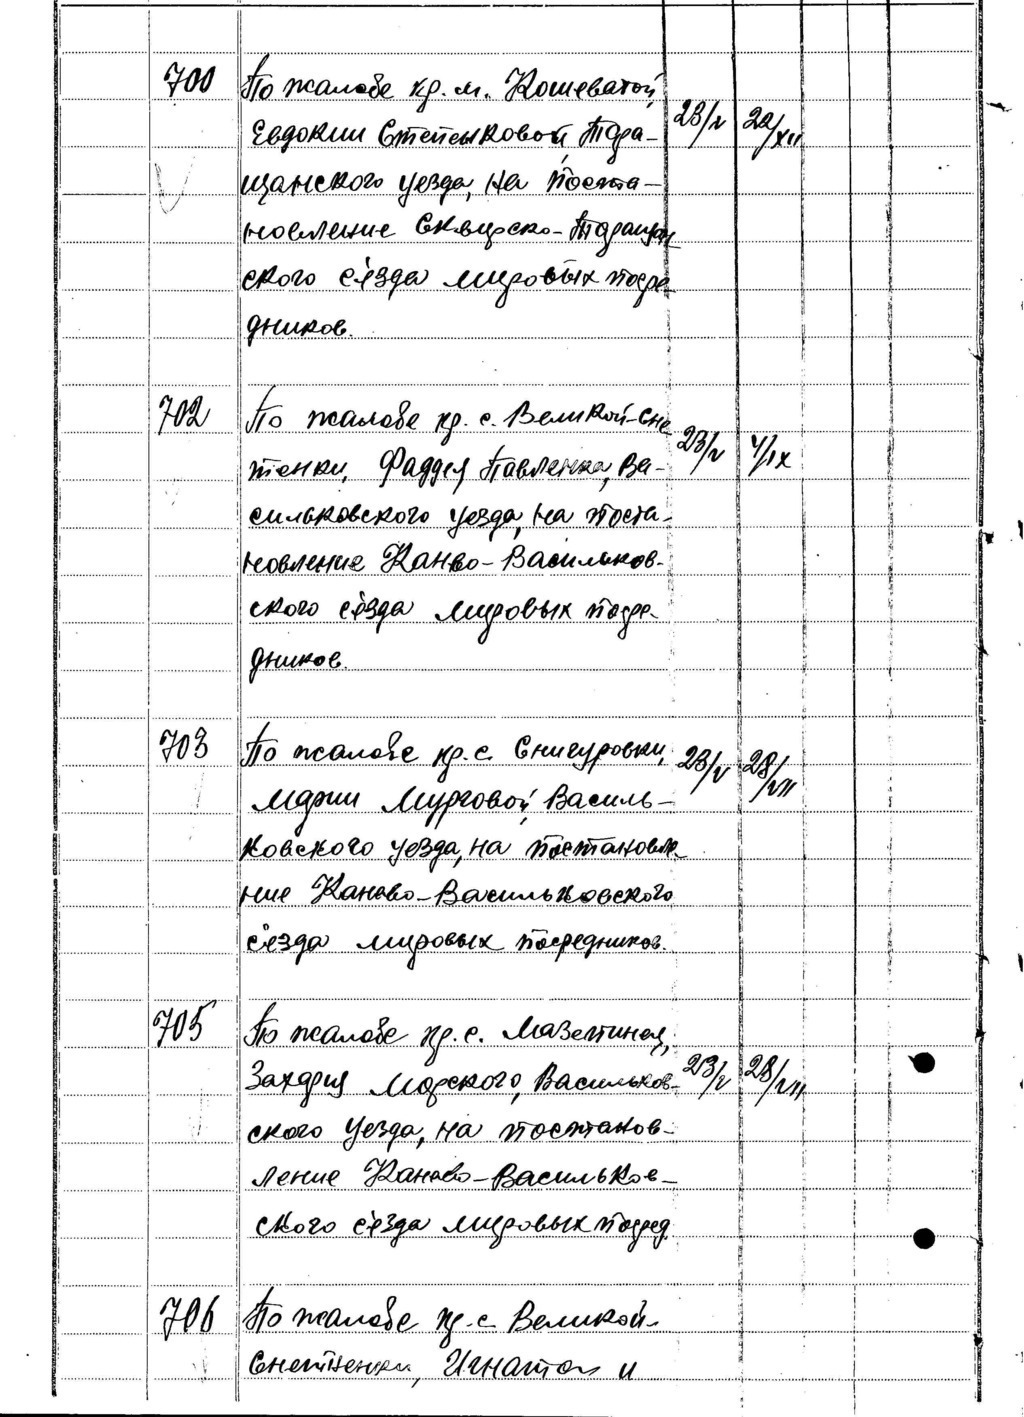 700 По жалобе кр. м. Кошеватой,
Евдокии Степенковой, Тара- 23/V 22/XII
щанского уезда, на поста-
новление Сквирско-Таращан
ского съезда мировых посре
дников.
702 По жалобе кр. с. Великой-Сне
тенки, Фаддея Павленка, Ва- 23/V 4/IX
сильковского уезда, на поста-
новление Канево-Васильков-
ского съезда мировых посре-
дников.
703 По жалобе кр. с. Снигуровки, 23/V 28/VII
Марии Мурговой, Василь-
ковского уезда, на постановле-
ние Канево-Васильковского
съезда мировых посредников.
705 По жалобе кр. с.
Захария Морского, Васильков- 23/V 28/VII
ского уезда, на постанов-
ление Канево-Васильков-
ского съезда мировых посред.
706 По жалобе кр. с. Великой-
Снетенки, Игната и